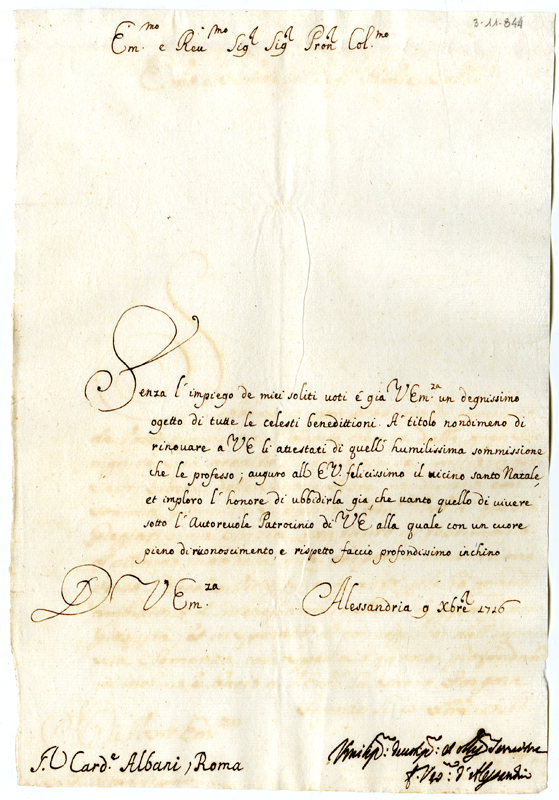 3-11-844
Em.mo e Reu.mo Sigr Sigr Pron Col.mo
Senza l'impiego de miei soliti uoti é già VEm.za un degnissimo
ogetto di tutte le celesti benedittioni. A' titolo nondimeno di
rinouare a VE li attestati di quell' humilissima sommissione
che le professo; auguro all' EV felicissimo il uicino santo Natale,
et imploro l'honore di ubbidirla già, che uanto quello di uiuere
sotto l'Autoreuole Patrocinio di VE, alla quale con un cuore
pieno di riconoscimento, e rispetto faccio profondissimo inchino
D VEm.za
Alessandria 9 Xbre 1716
Umilis.mo deuotis.mo et Seruitore
f. Ves.o d'Alessandria
S.V Card.e Albani, Roma